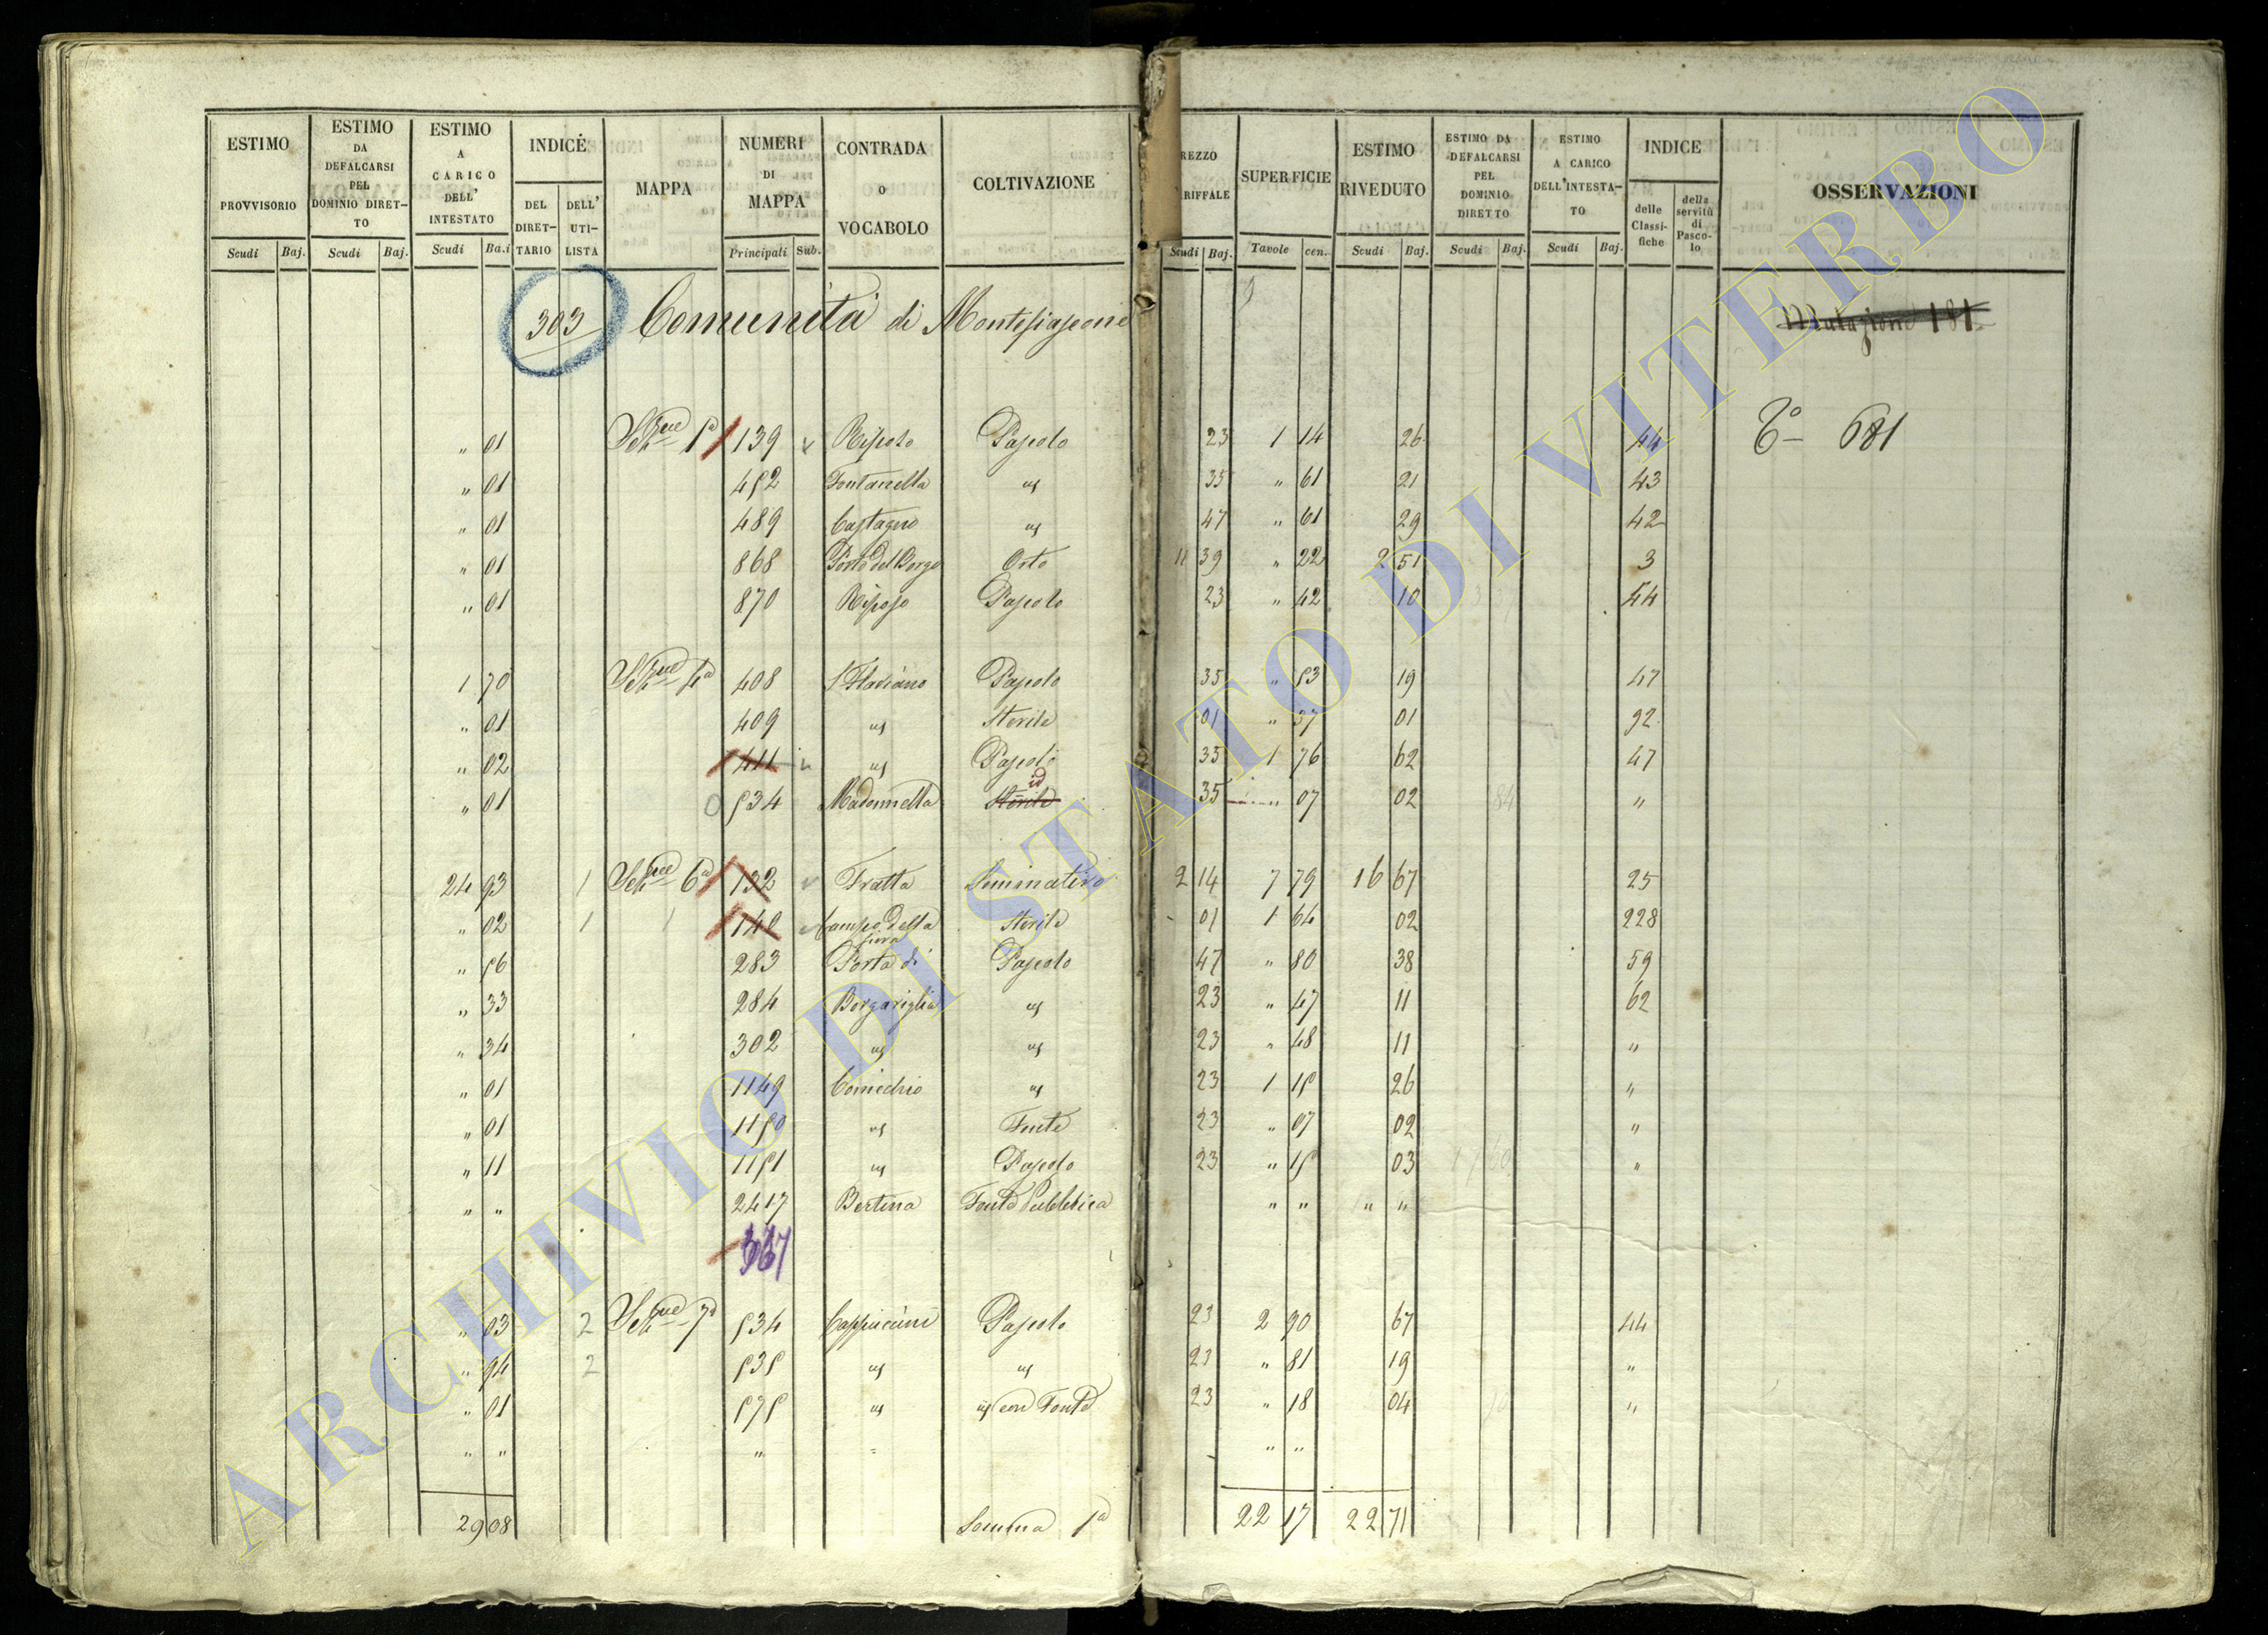 ESTIMO PROVVISORIO | ESTIMO DA DEFALCARSI PEL DOMINIO DIRET-TO | ESTIMO A CARICO DELL' INTESTATO | INDICE | MAPPA | NUMERI DI MAPPA | CONTRADA O VOCABOLO | COLTIVAZIONE | REZZO RIFFALE | SUPERFICIE | ESTIMO RIVEDUTO | ESTIMO DA DEFALCARSI PEL DOMINIO DIRETTO | ESTIMO A CARICO DELL'INTESTA-TO | INDICE | OSSERVAZIONI
Scudi | Baj. | Scudi | Baj. | Scudi | Ba.i | DEL DIRET-TARIO | DELL' UTI-LISTA | Principali | Sub. | Scudi | Baj. | Tavole | cen. | Scudi | Baj. | Scudi | Baj. | Scudi | Baj. | delle Classi-fiche | della servitù di Pasco-lo
303 Comunità di Montefiascone Mutazione 181
" 01 Sezne 1a 139 Riposo Pascolo 23 1 14 26 44 To 681
" 01 452 Fontanella id 35 " 61 21 43
" 01 489 Castagno id 47 " 61 29 42
" 01 868 Porta del Borgo Orto 11 39 " 22 2 51 3
" 01 870 Riposo Pascolo 23 " 42 10 44
1 70 Sezne 4a 408 S Flaviano Pascolo 35 " 53 19 47
" 01 409 id Sterile 01 " 37 01 92
" 02 411 id Pascolo 35 1 76 62 47
" 01 534 Madonnella Sterile id 35 " 07 02 "
24 93 1 Sezne 6a 132 Fratta Seminativo 2 14 7 79 16 67 25
" 02 1 140 Campo della fiera Sterile 01 1 64 02 228
" 56 283 Porta di Pascolo 47 " 80 38 59
" 33 284 Borgariglia id 23 " 47 11 62
" 34 302 id id 23 " 48 11 "
" 01 1149 id 23 1 15 26 "
" 01 1150 id Fonte 23 " 07 02 "
" 11 1151 id Pascolo 23 " 15 03 "
" " 2417 Bertina Fonte Pubblica " " " "
" 03 2 Sezne 7a 534 Cappuccini Pascolo 23 2 90 67 44
" 94 2 535 id id 23 " 81 19 "
" 01 575 id id con Fonte 23 " 18 04 "
" " " " " "
29 08 Somma 1a 22 17 22 71
ARCHIVIO DI STATO DI VITERBO